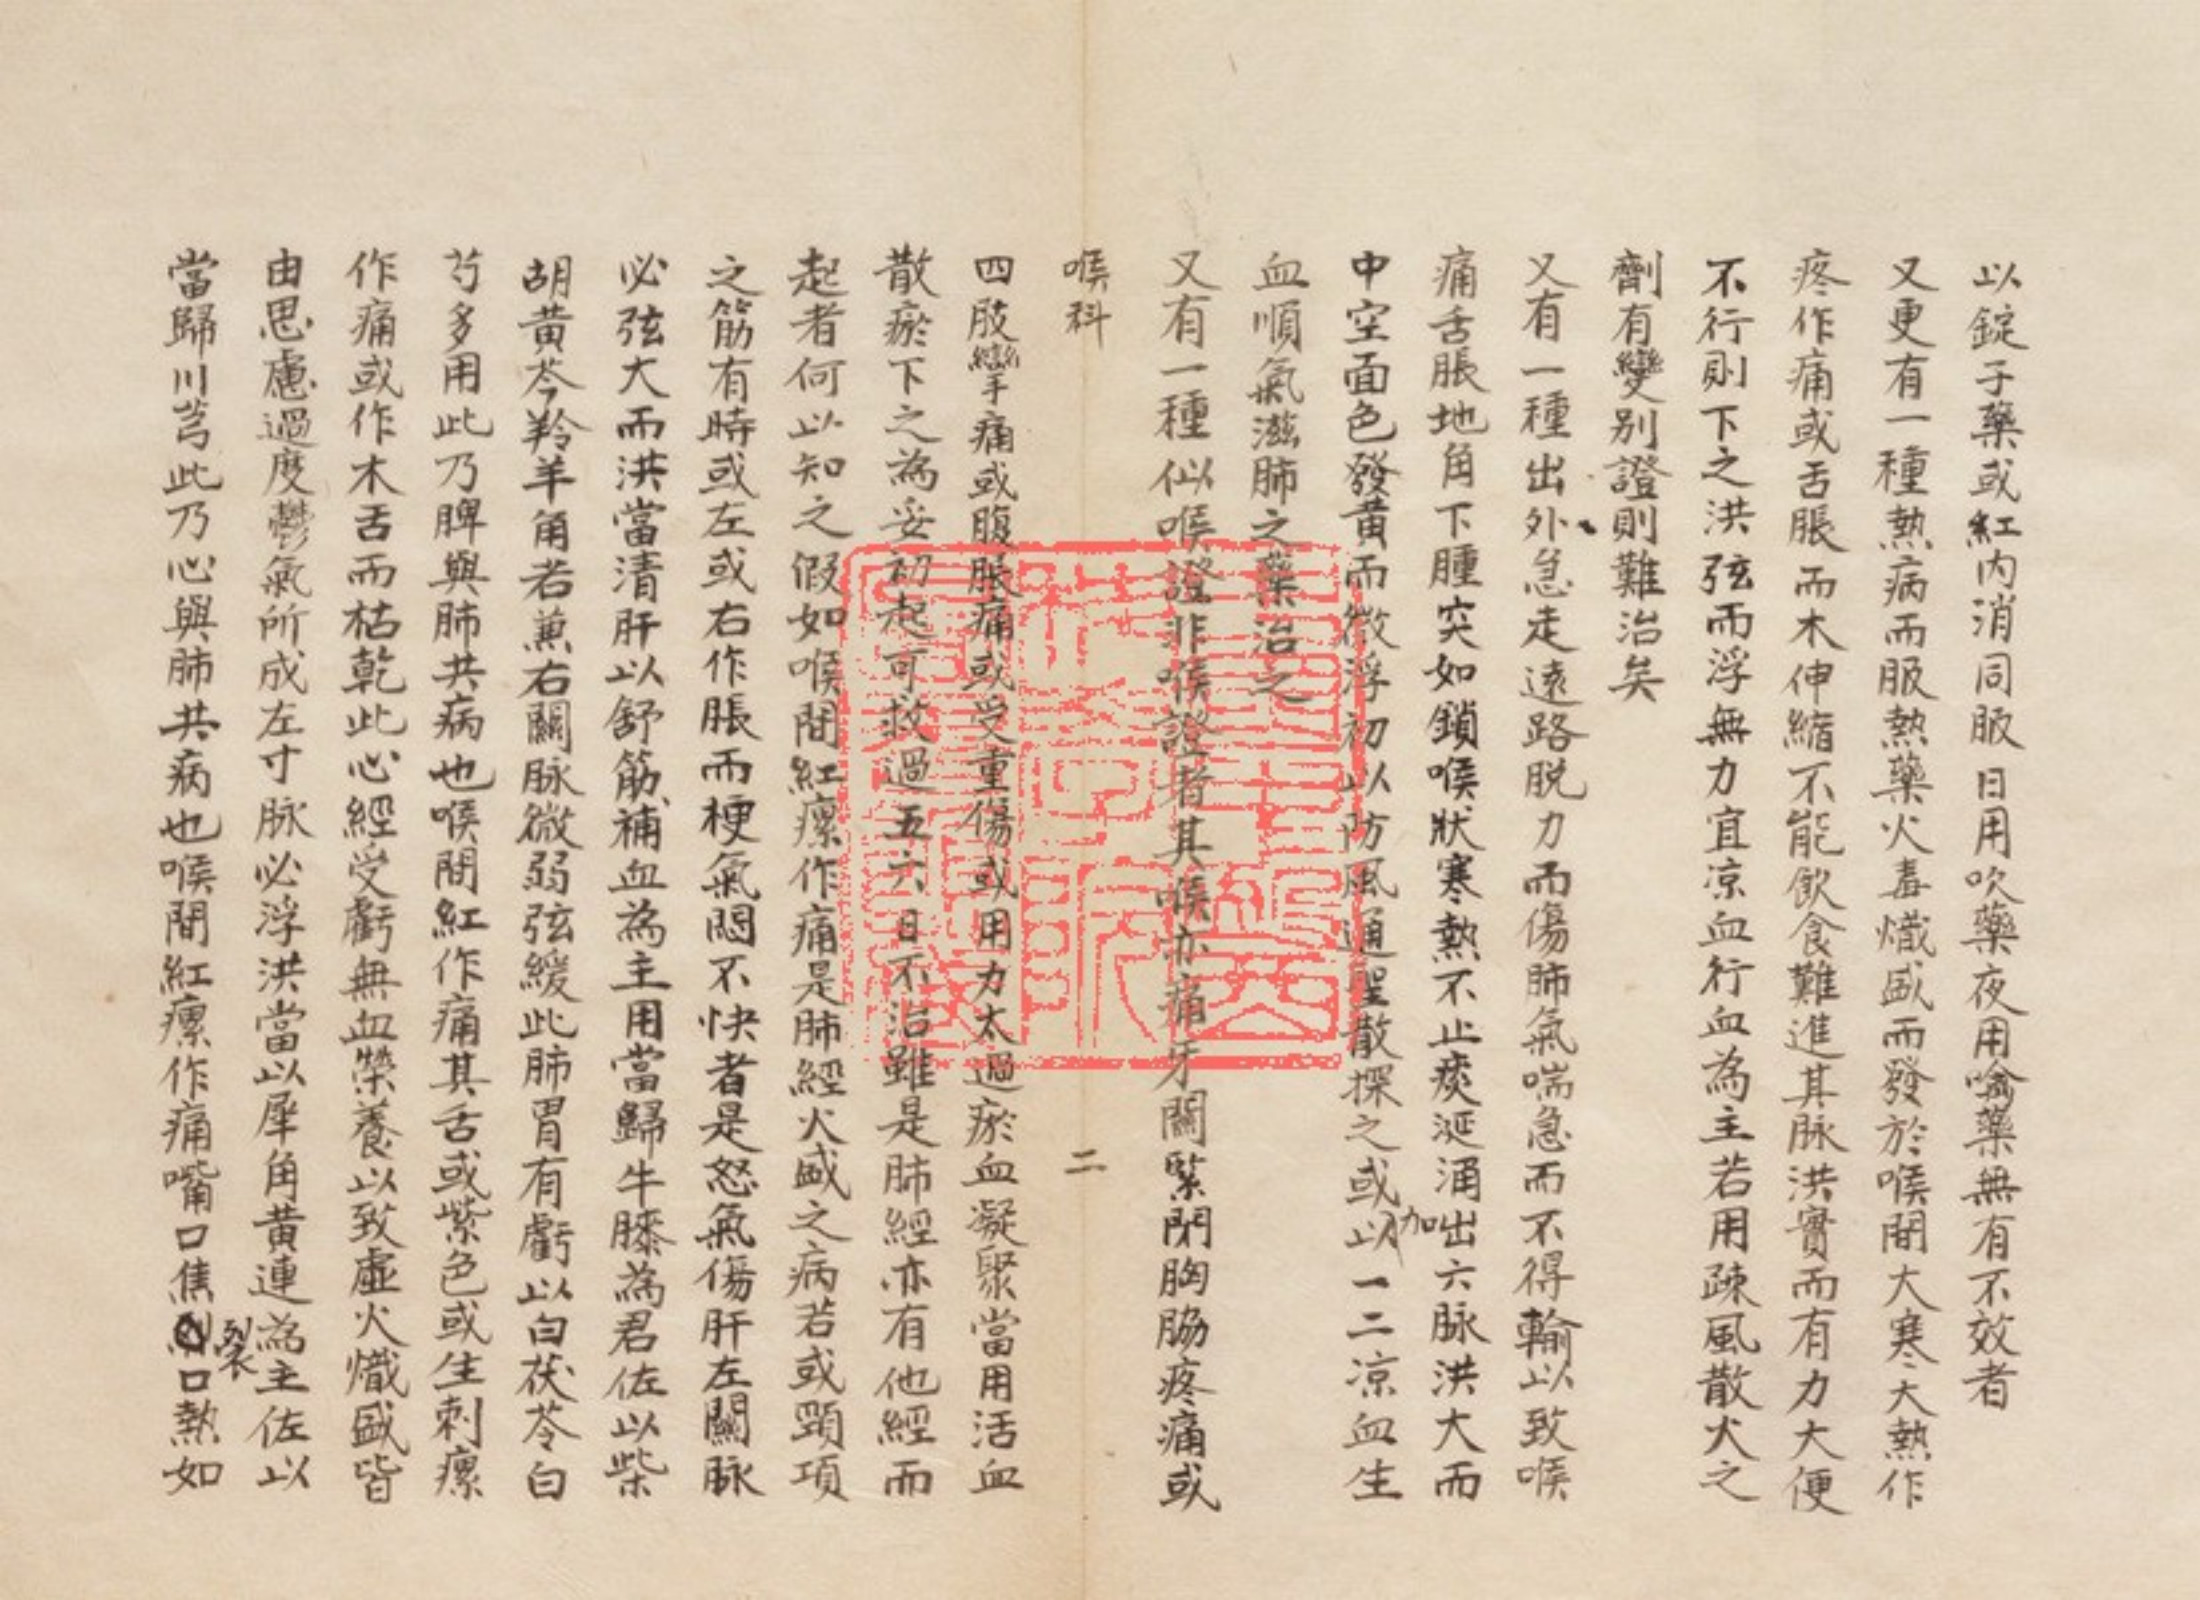 以錠子藥或紅內消同服日用吹藥夜用噙藥無有不效者
又更有一種熱病而服熱藥火毒熾盛而發於喉間大寒大熱作
疼作痛或舌脹而木伸縮不能飲食難進其脉洪實而有力大便
不行則下之洪弦而浮無力宜凉血行血為主若用疎風散火之
劑有變別證則難治矣
又有一種出外急走遠路脫力而傷肺氣喘急而不得輸以致喉
痛舌脹地角下腫突如鎖喉狀寒熱不止痰涎涌出六脉洪大而
中空面色發黃而微浮初以防風通聖散探之或以加一二凉血生
血順氣滋肺之藥治之
又有一種似喉證非喉證者其喉亦痛牙關緊閉胸脇疼痛或
喉科 二
四肢攣痛或腹脹痛或受重傷或用力太過瘀血凝聚當用活血
散瘀下之為妥初起可救過五六日不治雖是肺經亦有他經而
起者何以知之假如喉間紅瘰作痛是肺經火盛之病若或頸項
之筋有時或左或右作脹而梗氣悶不快者是怒氣傷肝左關脉
必弦大而洪當清肝以舒筋補血為主用當歸牛膝為君佐以柴
胡黃芩羚羊角若兼右關脉微弱弦緩此肺胃有虧以白茯苓白
芍多用此乃脾與肺共病也喉間紅作痛其舌或紫色或生刺瘰
作痛或作木舌而枯乾此心經受虧無血榮養以致虛火熾盛皆
由思慮過度鬱氣所成左寸脉必浮洪當以犀角黃連為主佐以
當歸川芎此乃心與肺共病也喉間紅瘰作痛嘴口焦裂口熱如